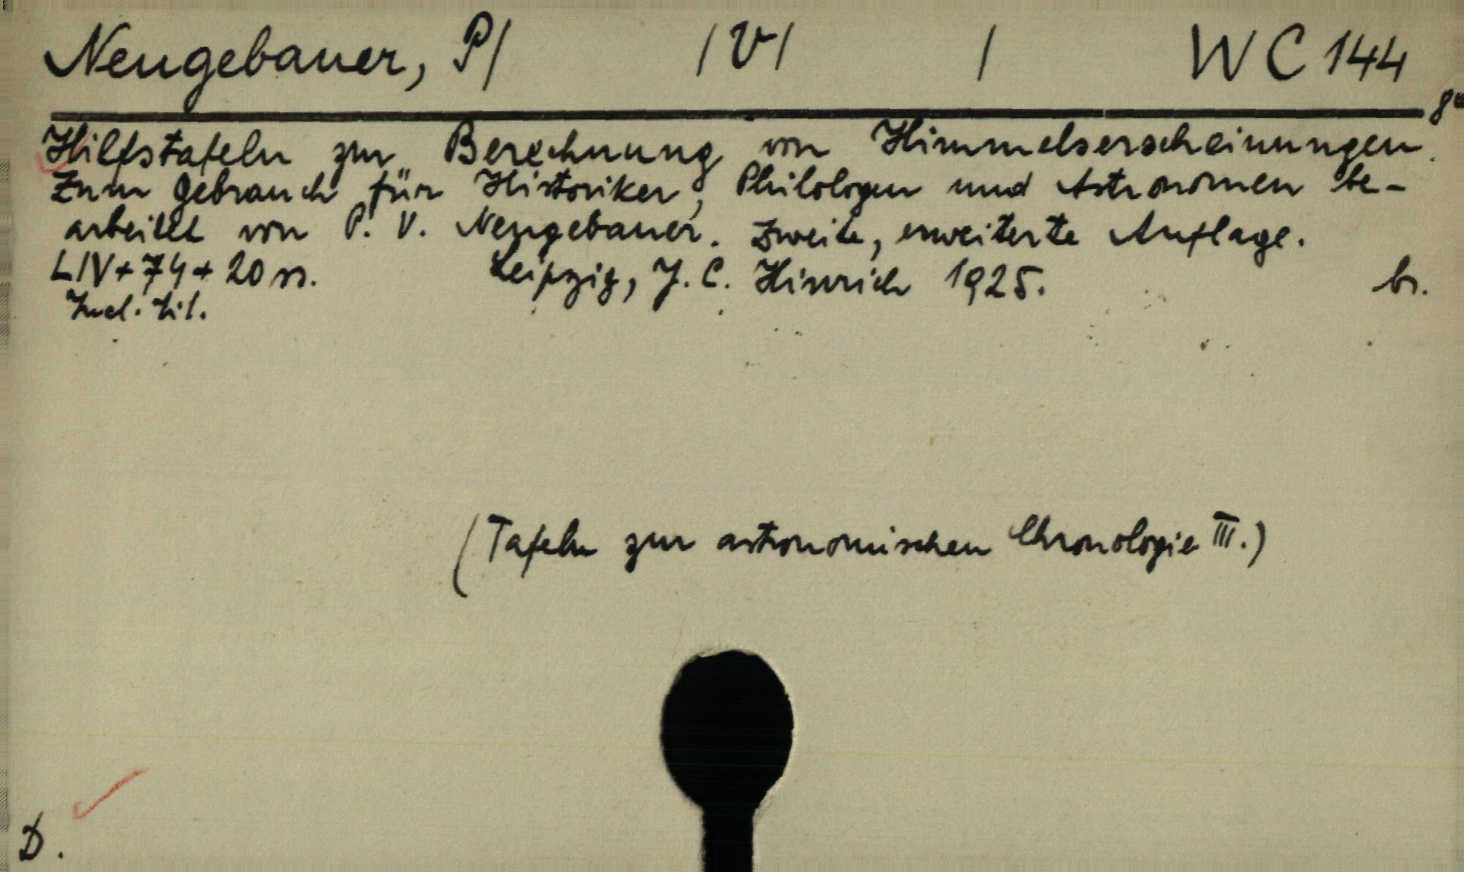 Neugebauer, P/ /V/ / WC 144
8°
Hilfstafeln zur Berechnung von Himmelserscheinungen.
Zum Gebrauch für Historiker, Philologen und Astronomen be-
arbeitet von P. V. Neugebauer. Zweite, erweiterte Auflage.
LIV+74+20 ss. Leipzig, J. C. Hinrich 1925. br.
Incl. tit.
(Tafeln zur astronomischen Chronologie III.)
D.